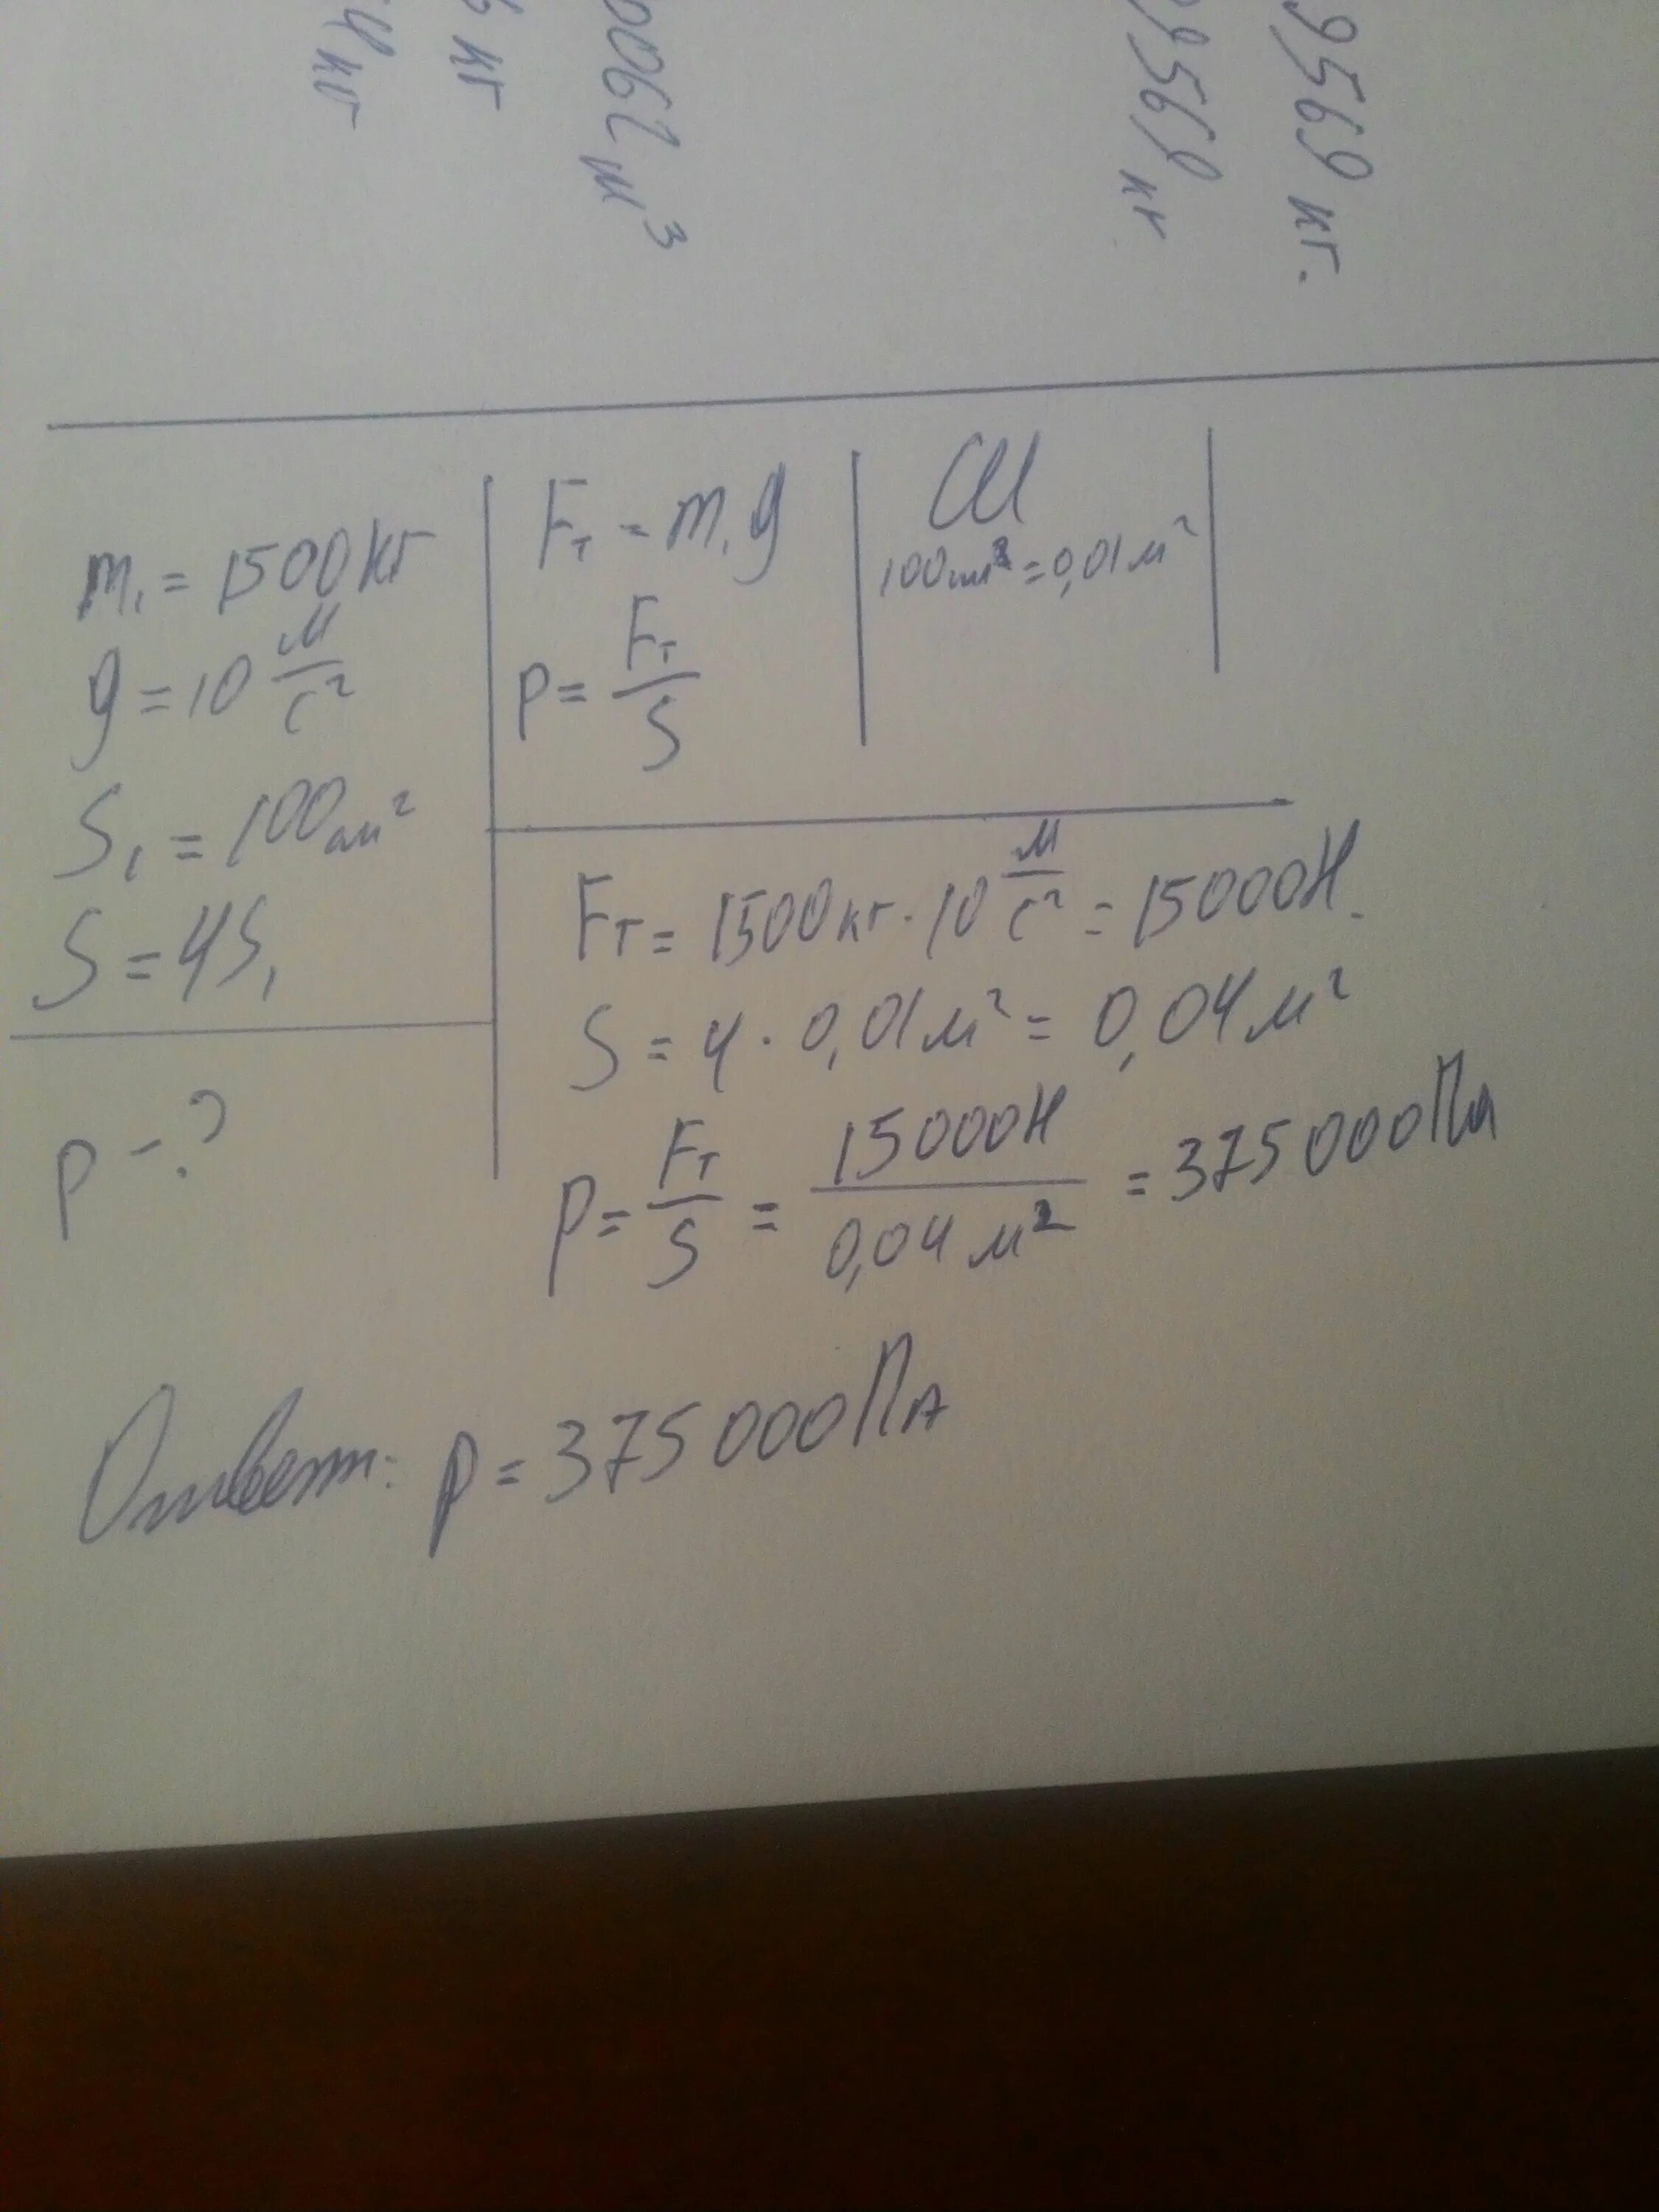 4 кг
6 кг
0061 м³
9569 кг
9569 кг.
m₁ = 1500 кг
g = 10 м/с²
S₁ = 100 см²
S = 4S₁
p - ?
Fт = m₁g
p = Fт/S
СИ
100 см² = 0,01 м²
Fт = 1500 кг · 10 м/с² = 15000 Н.
S = 4 · 0,01 м² = 0,04 м²
p = Fт/S = 15000 Н/0,04 м² = 375 000 Па
Ответ: p = 375 000 Па